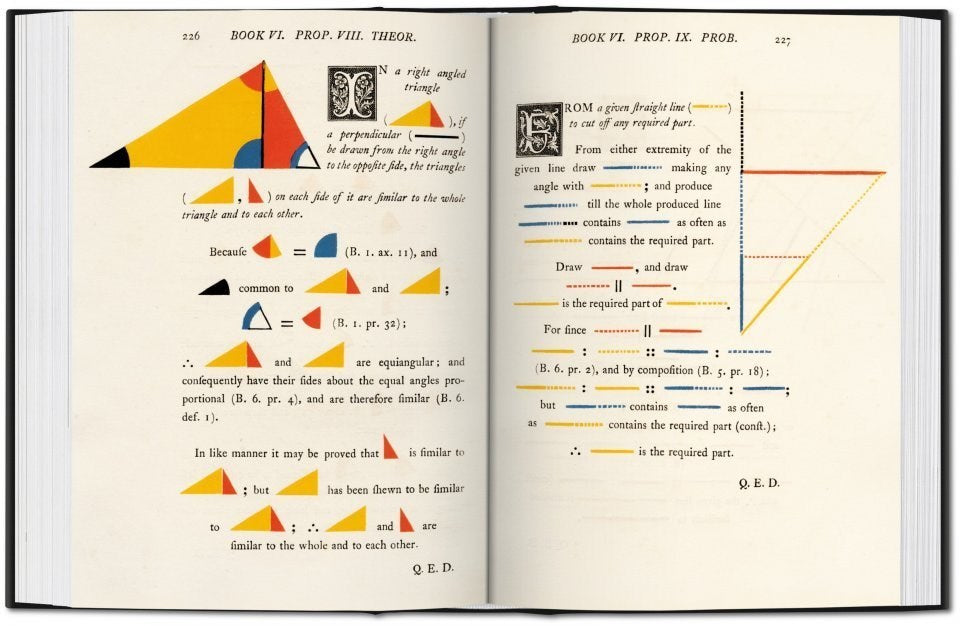 226 BOOK VI. PROP. VIII. THEOR.
IN a right angled
triangle
( ), if
a perpendicular ( )
be drawn from the right angle
to the oppoſite ſide, the triangles
( , ) on each ſide of it are ſimilar to the whole
triangle and to each other.
Becauſe = (B. 1. ax. 11), and
common to and ;
= (B. 1. pr. 32);
∴ and are equiangular; and
conſequently have their ſides about the equal angles pro-
portional (B. 6. pr. 4), and are therefore ſimilar (B. 6.
def. 1).
In like manner it may be proved that is ſimilar to
; but has been ſhewn to be ſimilar
to ; ∴ and are
ſimilar to the whole and to each other.
Q. E. D.
BOOK VI. PROP. IX. PROB. 227
FROM a given ſtraight line ( )
to cut off any required part.
From either extremity of the
given line draw making any
angle with ; and produce
till the whole produced line
contains as often as
contains the required part.
Draw , and draw
|| .
is the required part of .
For ſince ||
: :: :
(B. 6. pr. 2), and by compoſition (B. 5. pr. 18);
: :: : ;
but contains as often
as contains the required part (conſt.);
∴ is the required part.
Q. E. D.